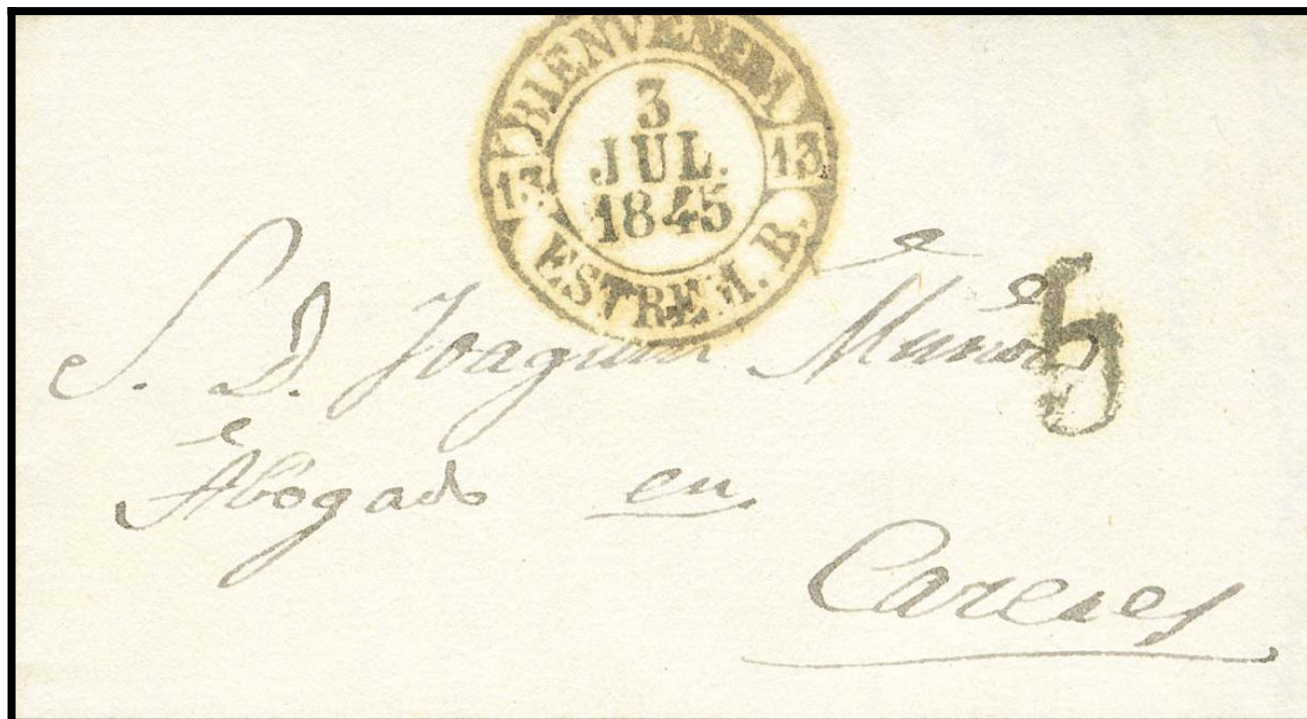 BIENVENIDA
13 3 13
JUL.
1845
ESTREM. B.
S. D. Joaquin Muñoz
Abogado en
Caceres